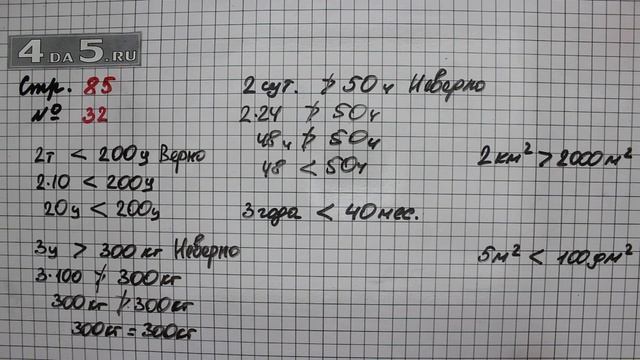 4DA5.RU
Стр. 85
№ 32
2т < 200ц Верно
2·10 < 200ц
20ц < 200ц
3ц > 300 кг Неверно
3·100 ≯ 300кг
300кг ≯ 300кг
300кг = 300кг
2 сут. ≯ 50ч Неверно
2·24 ≯ 50ч
48ч ≯ 50ч
48 < 50ч
3 года < 40 мес.
2 км² > 2000 м²
5м² < 100дм²